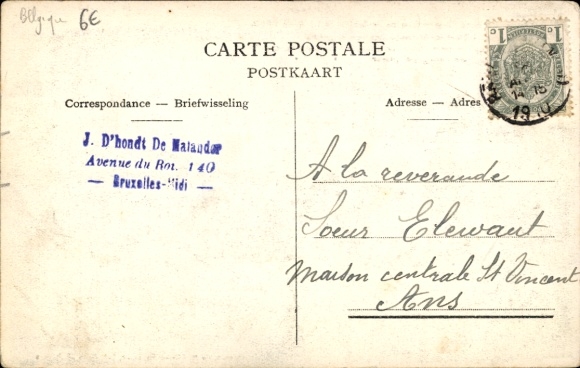 Belgique 6€
CARTE POSTALE
POSTKAART
Correspondance — Briefwisseling
Adresse — Adres
J. D'hondt De Malander
Avenue du Roi. 140
— Bruxelles-Midi —
A la reverande
Soeur Elewaut
Maison centrale St Vincent
Ans
1 c 1 c
14 15
1910